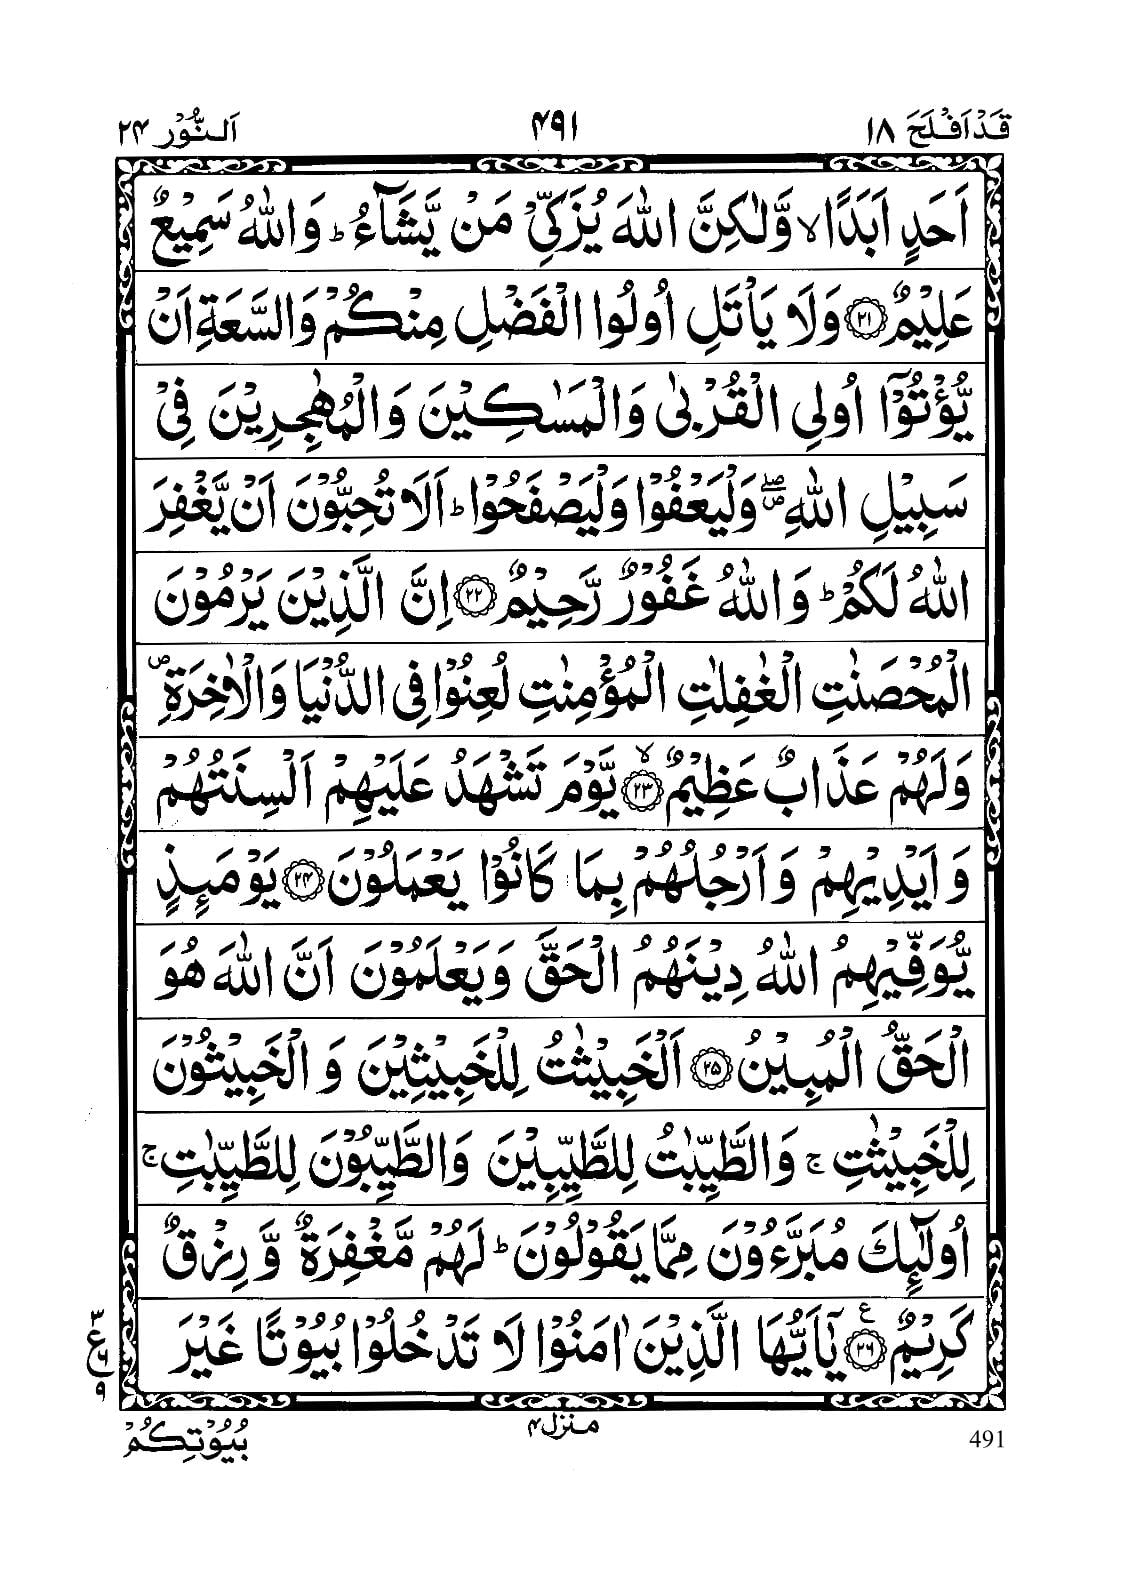 قَدْ اَفْلَحَ ۱۸
۴۹۱
اَلنُّوْر ۲۴
اَحَدٍ اَبَدًا ۙ وَّلٰكِنَّ اللّٰهَ يُزَكِّىْ مَنْ يَّشَآءُ ؕ وَاللّٰهُ سَمِيْعٌ
عَلِيْمٌ ﴿۲۱﴾ وَلَا يَاْتَلِ اُولُوا الْفَضْلِ مِنْكُمْ وَالسَّعَةِ اَنْ
يُّؤْتُوْۤا اُولِى الْقُرْبٰى وَالْمَسٰكِيْنَ وَالْمُهٰجِرِيْنَ فِىْ
سَبِيْلِ اللّٰهِ ۖ وَلْيَعْفُوْا وَلْيَصْفَحُوْا ؕ اَلَا تُحِبُّوْنَ اَنْ يَّغْفِرَ
اللّٰهُ لَكُمْ ؕ وَاللّٰهُ غَفُوْرٌ رَّحِيْمٌ ﴿۲۲﴾ اِنَّ الَّذِيْنَ يَرْمُوْنَ
الْمُحْصَنٰتِ الْغٰفِلٰتِ الْمُؤْمِنٰتِ لُعِنُوْا فِى الدُّنْيَا وَالْاٰخِرَةِ ۪
وَلَهُمْ عَذَابٌ عَظِيْمٌ ۙ﴿۲۳﴾ يَّوْمَ تَشْهَدُ عَلَيْهِمْ اَلْسِنَتُهُمْ
وَاَيْدِيْهِمْ وَاَرْجُلُهُمْ بِمَا كَانُوْا يَعْمَلُوْنَ ﴿۲۴﴾ يَوْمَئِذٍ
يُّوَفِّيْهِمُ اللّٰهُ دِيْنَهُمُ الْحَقَّ وَيَعْلَمُوْنَ اَنَّ اللّٰهَ هُوَ
الْحَقُّ الْمُبِيْنُ ﴿۲۵﴾ اَلْخَبِيْثٰتُ لِلْخَبِيْثِيْنَ وَالْخَبِيْثُوْنَ
لِلْخَبِيْثٰتِ ۚ وَالطَّيِّبٰتُ لِلطَّيِّبِيْنَ وَالطَّيِّبُوْنَ لِلطَّيِّبٰتِ ۚ
اُولٰٓئِكَ مُبَرَّءُوْنَ مِمَّا يَقُوْلُوْنَ ؕ لَهُمْ مَّغْفِرَةٌ وَّرِزْقٌ
كَرِيْمٌ ﴿۲۶﴾ع يٰۤاَيُّهَا الَّذِيْنَ اٰمَنُوْا لَا تَدْخُلُوْا بُيُوْتًا غَيْرَ
۳
ع ۶
۹
491
منزل ۴
بُيُوْتِكُمْ